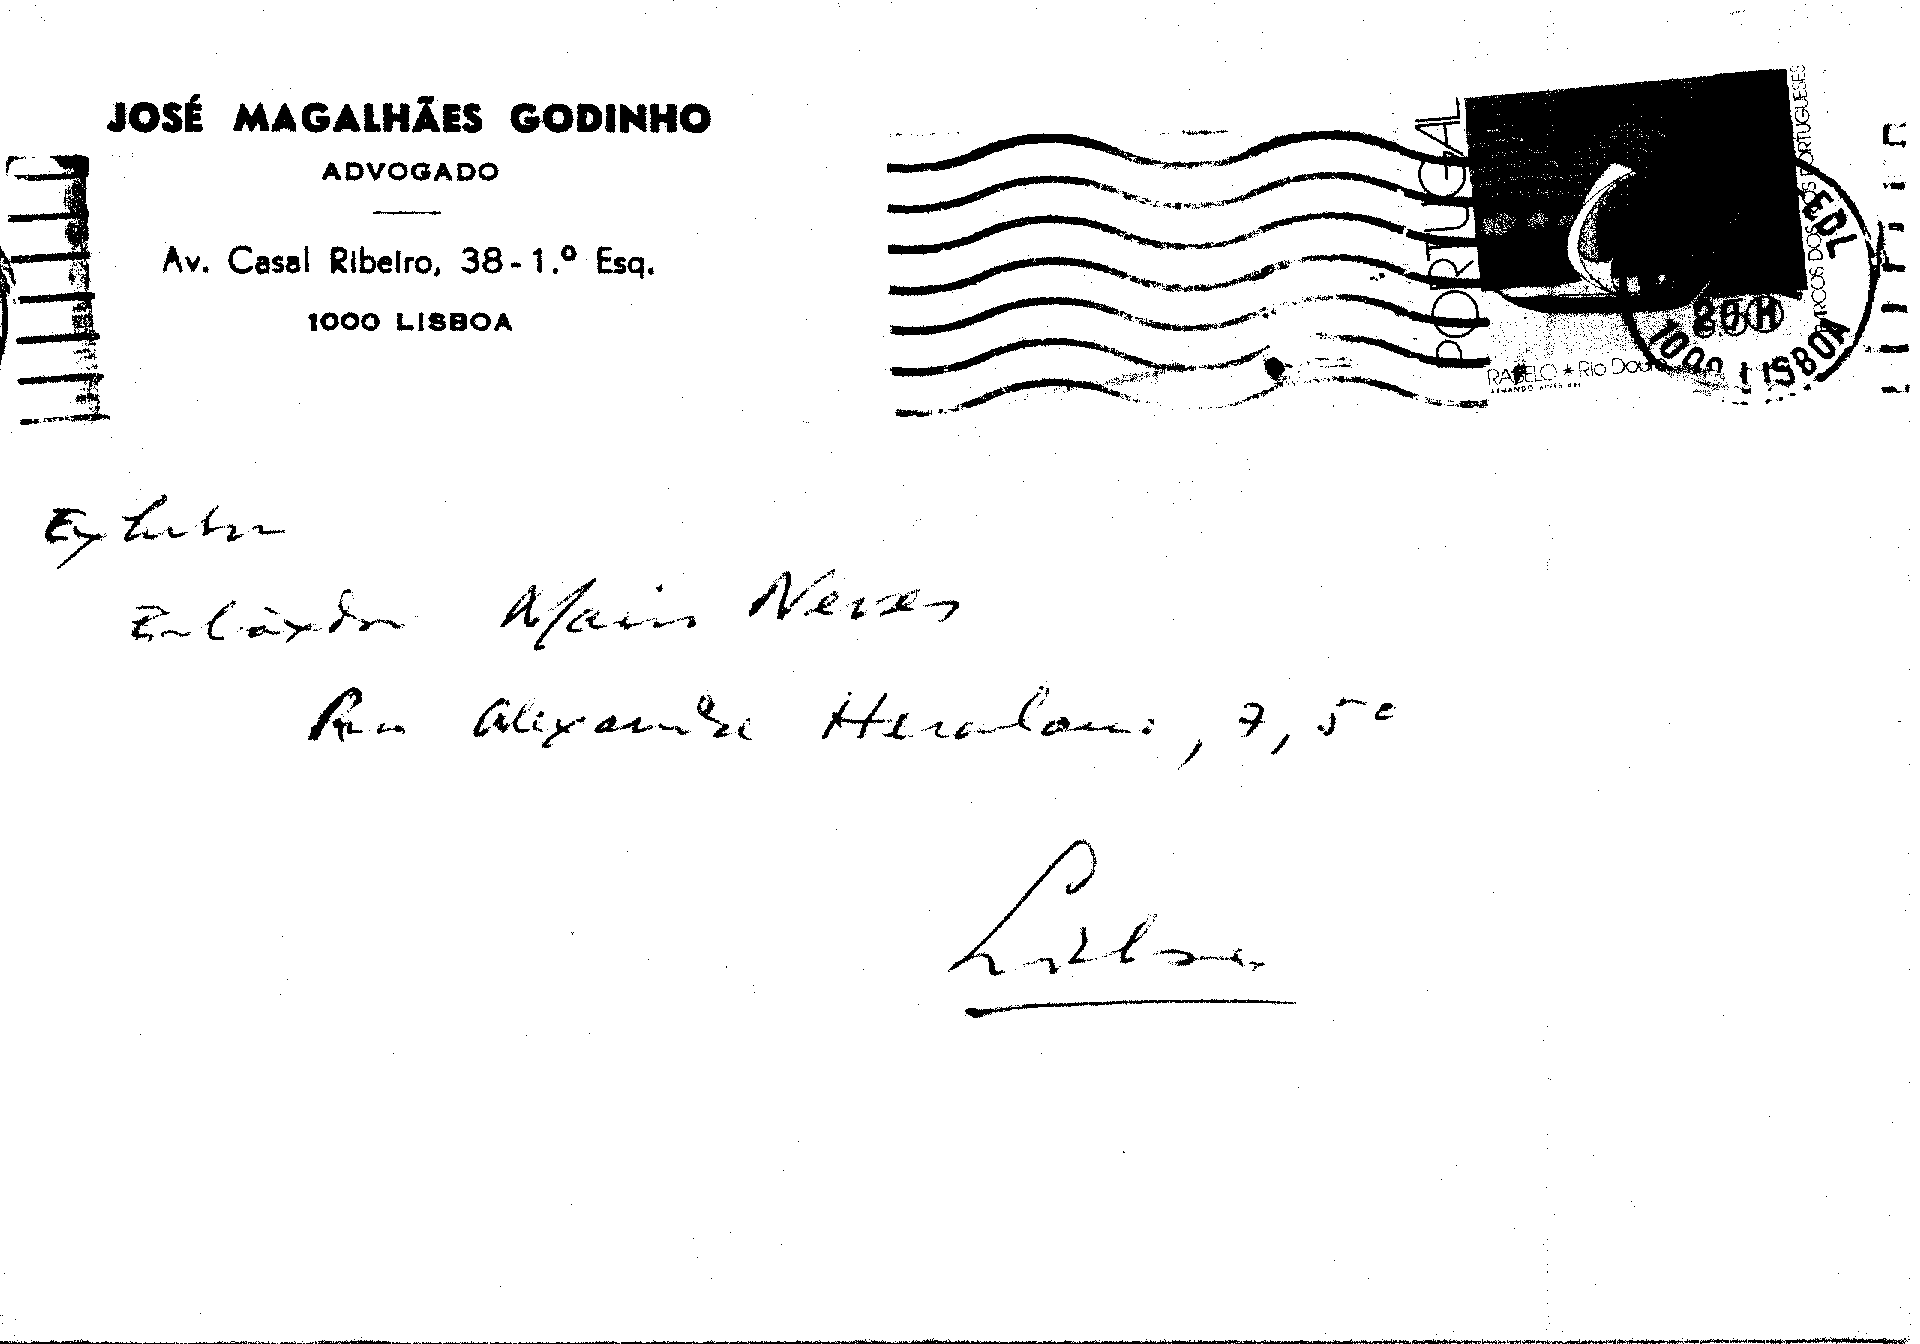 JOSÉ MAGALHÃES GODINHO
ADVOGADO
Av. Casal Ribeiro, 38-1.º Esq.
1000 LISBOA
PORTUGAL
BARCOS DOS RIOS PORTUGUESES
RABELO ★ Rio Douro
1000 LISBOA
Neves
Rua Alexandre Herculano, 7, 5º
Lisboa